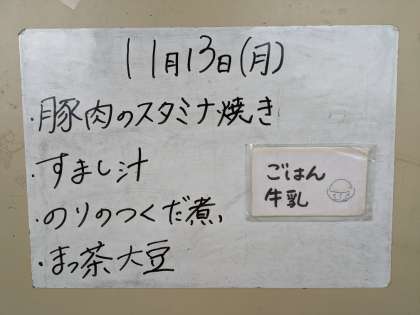 11月13日(月)
・豚肉のスタミナ焼き
・すまし汁
・のりのつくだ煮
・まっ茶大豆
ごはん
牛乳